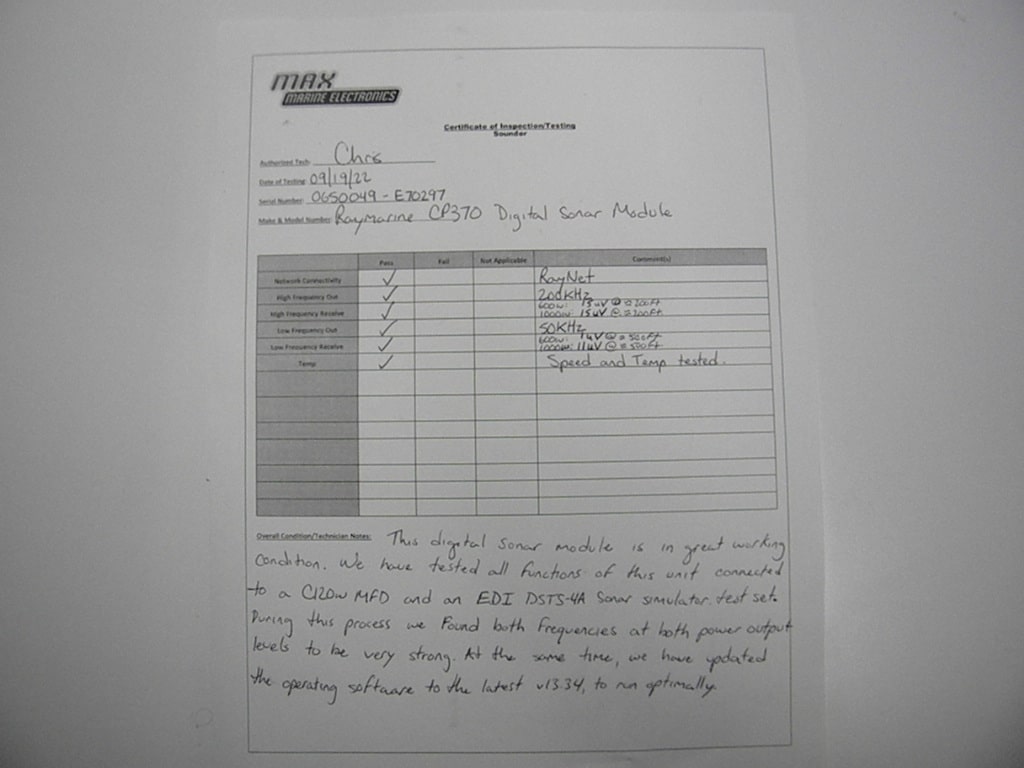 MAX
MARINE ELECTRONICS
Certificate of Inspection/Testing
Sounder
Authorized Tech: Chris
Date of Testing: 09/19/22
Serial Number: 0650049 - E70297
Make & Model Number: Raymarine CP370 Digital Sonar Module
Pass Fail Not Applicable Comment(s)
Network Connectivity ✓ RayNet
High Frequency Out ✓ 200KHz
High Frequency Receive ✓ 600w: 13uV @ ≈200ft
1000w: 15uV @ ≈200ft
Low Frequency Out ✓ 50KHz
Low Frequency Receive ✓ 600w: uV @ ≈500ft
1000w: 11uV @ ≈500ft
Temp ✓ Speed and Temp tested.
Overall Condition/Technician Notes: This digital sonar module is in great working
condition. We have tested all functions of this unit connected
to a C120w MFD and an EDI DSTS-4A Sonar simulator test set.
During this process we found both frequencies at both power output
levels to be very strong. At the same time, we have updated
the operating software to the latest v13.34, to run optimally.